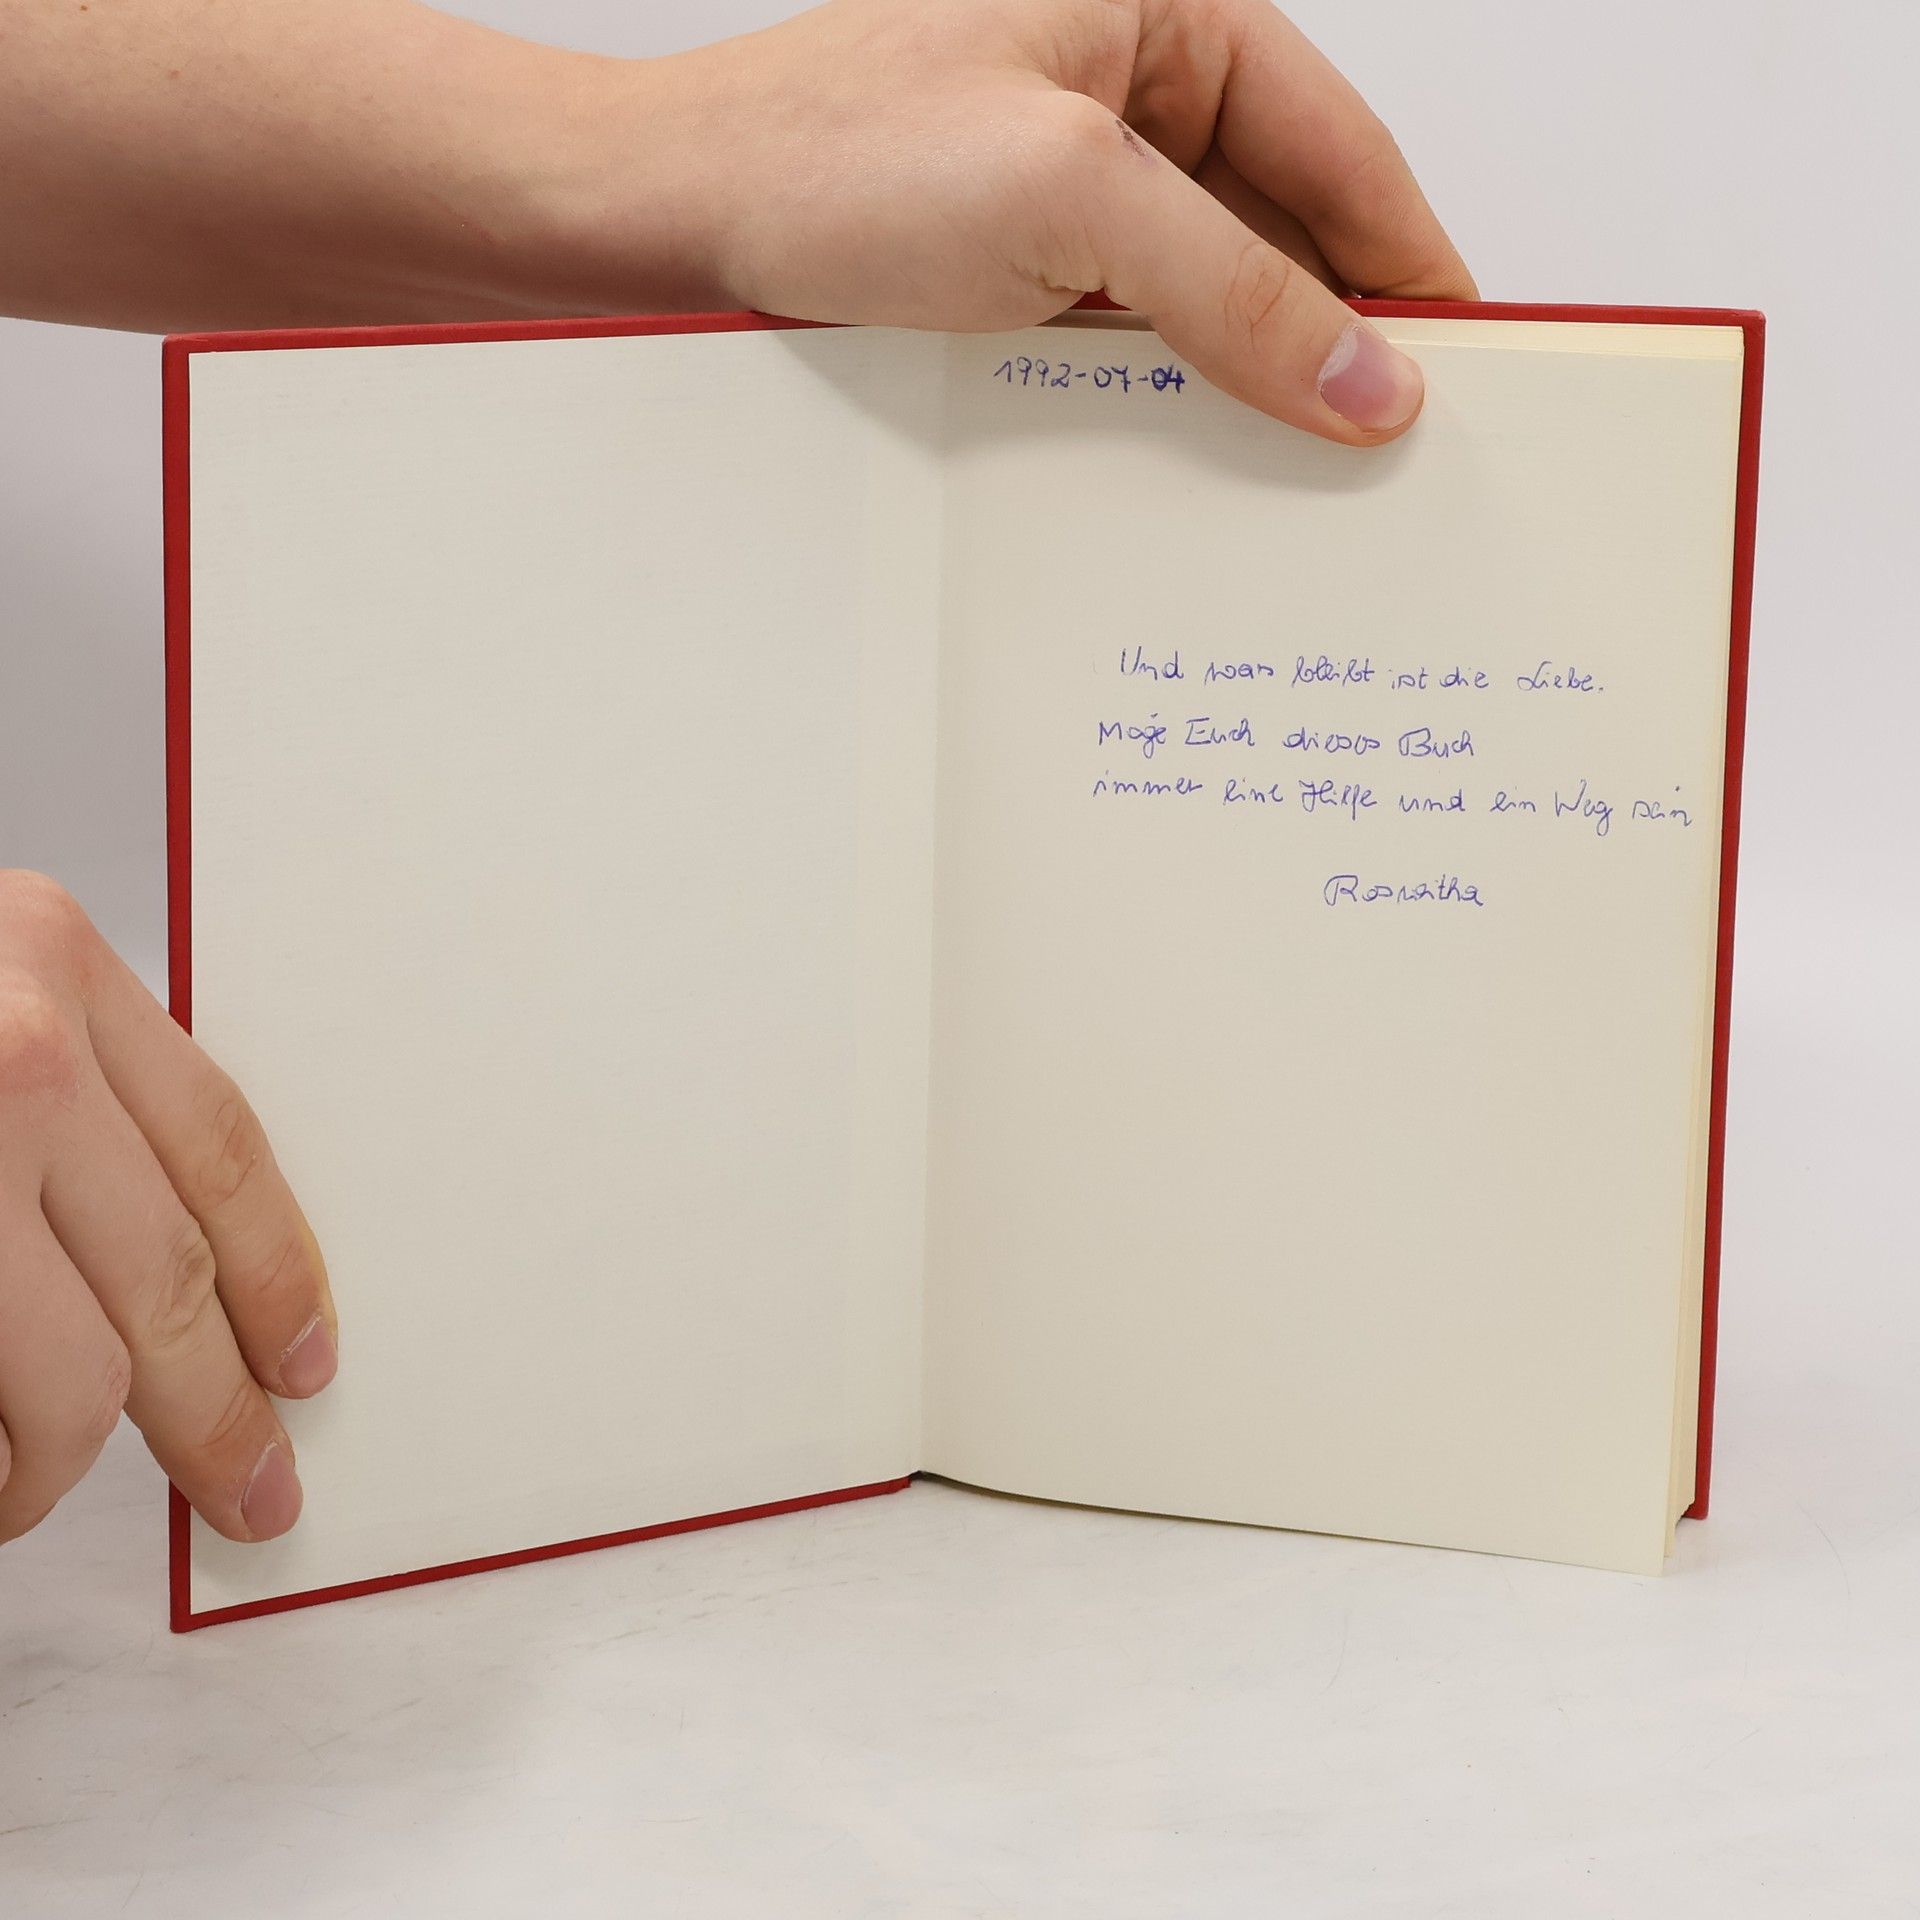 1992-07-04
Und was bleibt ist die Liebe.
Möge Euch dieses Buch
immer eine Hilfe und ein Weg sein
Roswitha